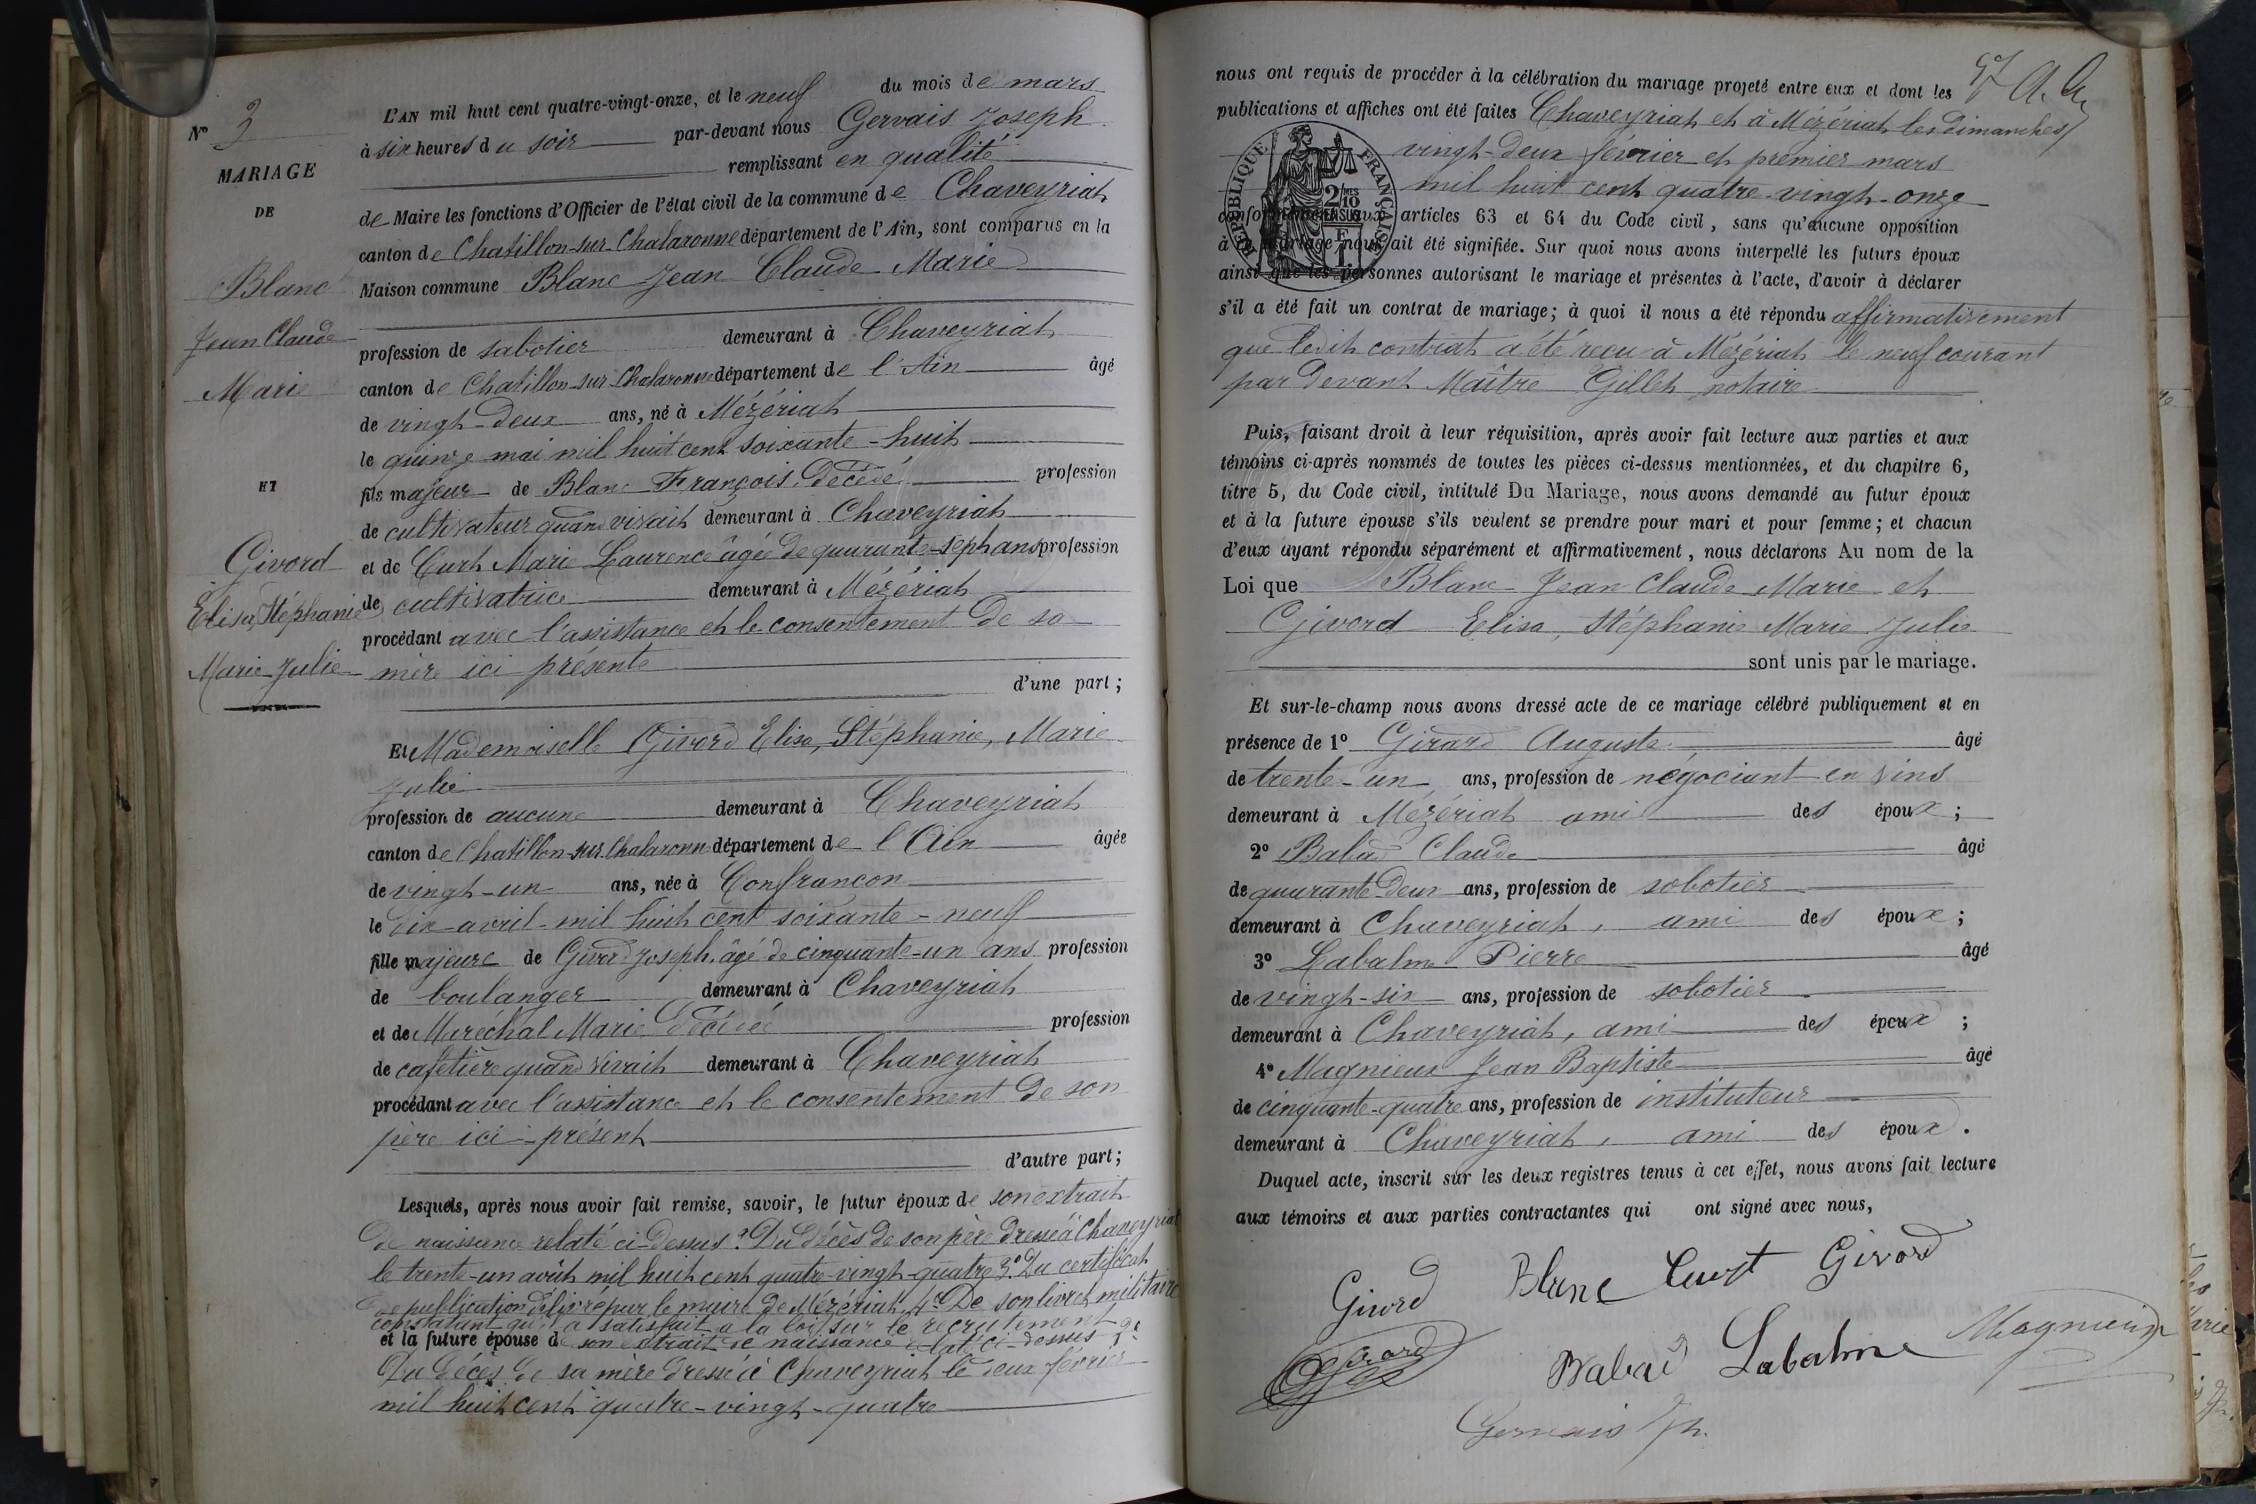 N° 3
MARIAGE
DE
Blanc
Jean Claude
Marie
ET
Givord
Elisa, Stéphanie
Marie Julie
L'AN mil huit cent quatre-vingt-onze, et le neuf du mois de mars
à six heures du soir par-devant nous Gervais Joseph
remplissant en qualité
de Maire les fonctions d'Officier de l'état civil de la commune de Chaveyriat
canton de Chatillon-sur-Chalaronne département de l'Ain, sont comparus en la
Maison commune Blanc Jean Claude Marie
profession de sabotier demeurant à Chaveyriat
canton de Chatillon-sur-Chalaronne département de l'Ain âgé
de vingt-deux ans, né à Mézériat
le quinze mai mil huit cent soixante-huit
fils majeur de Blanc François, décédé profession
de cultivateur quand vivait demeurant à Chaveyriat
et de Curt Marie Laurence âgée de quarante-sept ans profession
de cultivatrice demeurant à Mézériat
procédant avec l'assistance et le consentement de sa
mère ici présente
d'une part;
Et Mademoiselle Givord Elisa, Stéphanie, Marie
Julie
profession de aucune demeurant à Chaveyriat
canton de Chatillon-sur-Chalaronne département de l'Ain âgée
de vingt-un ans, née à Confrancon
le dix avril mil huit cent soixante-neuf
fille majeure de Givord Joseph, âgé de cinquante-un ans profession
de boulanger demeurant à Chaveyriat
et de Maréchal Marie décédée profession
de cafetière quand vivait demeurant à Chaveyriat
procédant avec l'assistance et le consentement de son
père ici présent
d'autre part;
Lesquels, après nous avoir fait remise, savoir, le futur époux de son extrait
de naissance relaté ci-dessus 2° Du décès de son père dressé à Chaveyriat
le trente-un août mil huit cent quatre-vingt-quatre 3° Du certificat
de publication délivré par le maire de Mézériat, 4° De son livret militaire
constatant qu'il a satisfait a la loi sur le recrutement
et la future épouse de son extrait de naissance relaté ci-dessus 2°
Du décès de sa mère dressé à Chaveyriat le deux février
mil huit cent quatre-vingt-quatre
nous ont requis de procéder à la célébration du mariage projeté entre eux et dont les
publications et affiches ont été faites Chaveyriat et à Mézériat les dimanches
vingt-deux février et premier mars
mil huit cent quatre-vingt-onze
RÉPUBLIQUE FRANÇAISE
2/10 MES
EN SUS
F
1
conformément aux articles 63 et 64 du Code civil, sans qu'aucune opposition
à ce mariage nous ait été signifiée. Sur quoi nous avons interpellé les futurs époux
ainsi que les personnes autorisant le mariage et présentes à l'acte, d'avoir à déclarer
s'il a été fait un contrat de mariage; à quoi il nous a été répondu affirmativement
que ledit contrat a été reçu à Mézériat le neuf courant
par devant Maître Gillet notaire
Puis, faisant droit à leur réquisition, après avoir fait lecture aux parties et aux
témoins ci-après nommés de toutes les pièces ci-dessus mentionnées, et du chapitre 6,
titre 5, du Code civil, intitulé Du Mariage, nous avons demandé au futur époux
et à la future épouse s'ils veulent se prendre pour mari et pour femme; et chacun
d'eux ayant répondu séparément et affirmativement, nous déclarons Au nom de la
Loi que Blanc Jean Claude Marie et
Givord Elisa, Stéphanie Marie Julie
sont unis par le mariage.
Et sur-le-champ nous avons dressé acte de ce mariage célébré publiquement et en
présence de 1° Girard Auguste âgé
de trente-un ans, profession de négociant en vins
demeurant à Mézériat ami des époux;
2° Babad Claude âgé
de quarante-deux ans, profession de sobotier
demeurant à Chaveyriat, ami des époux;
3° Labalme Pierre âgé
de vingt-six ans, profession de sobotier
demeurant à Chaveyriat, ami des époux;
4° Magnieux Jean Baptiste âgé
de cinquante-quatre ans, profession de instituteur
demeurant à Chaveyriat, ami des époux.
Duquel acte, inscrit sur les deux registres tenus à cet effet, nous avons fait lecture
aux témoins et aux parties contractantes qui ont signé avec nous,
Givord Blanc Curt Givord
Girard Babad Labalme Magnieux
Gervais Jph.